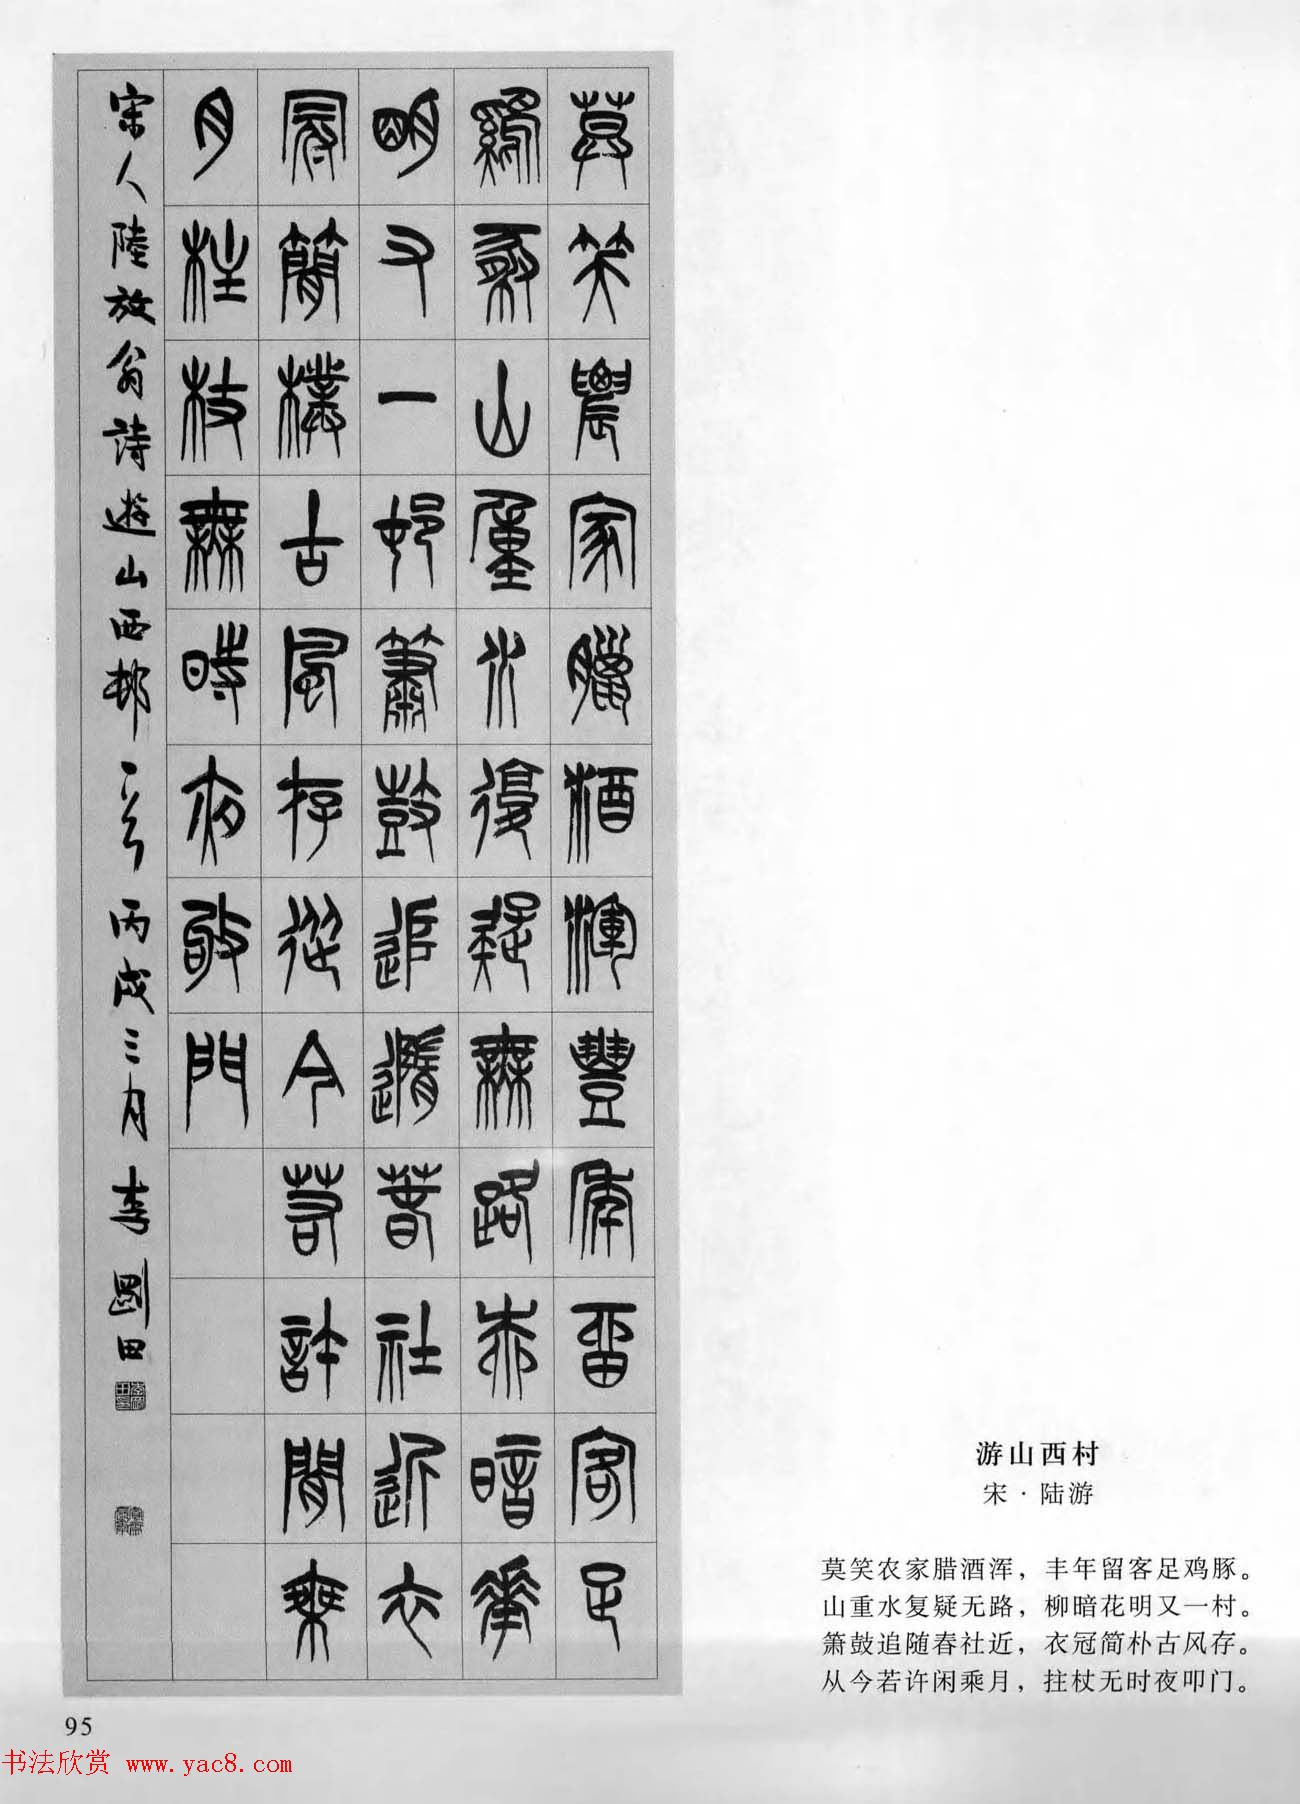 莫笑農家臘酒渾豐年畱客足
鷄豚山重水復疑無路柳暗華
朙又一邨簫鼓追隨春社近衣
冠簡樸古風存從今若許閒乘
月柱杖無時夜敂門
宋人陸放翁詩遊山西邨一首丙戌三月李剛田
游山西村
宋·陆游
莫笑农家腊酒浑，丰年留客足鸡豚。
山重水复疑无路，柳暗花明又一村。
箫鼓追随春社近，衣冠简朴古风存。
从今若许闲乘月，拄杖无时夜叩门。
95
书法欣赏 www.yac8.com